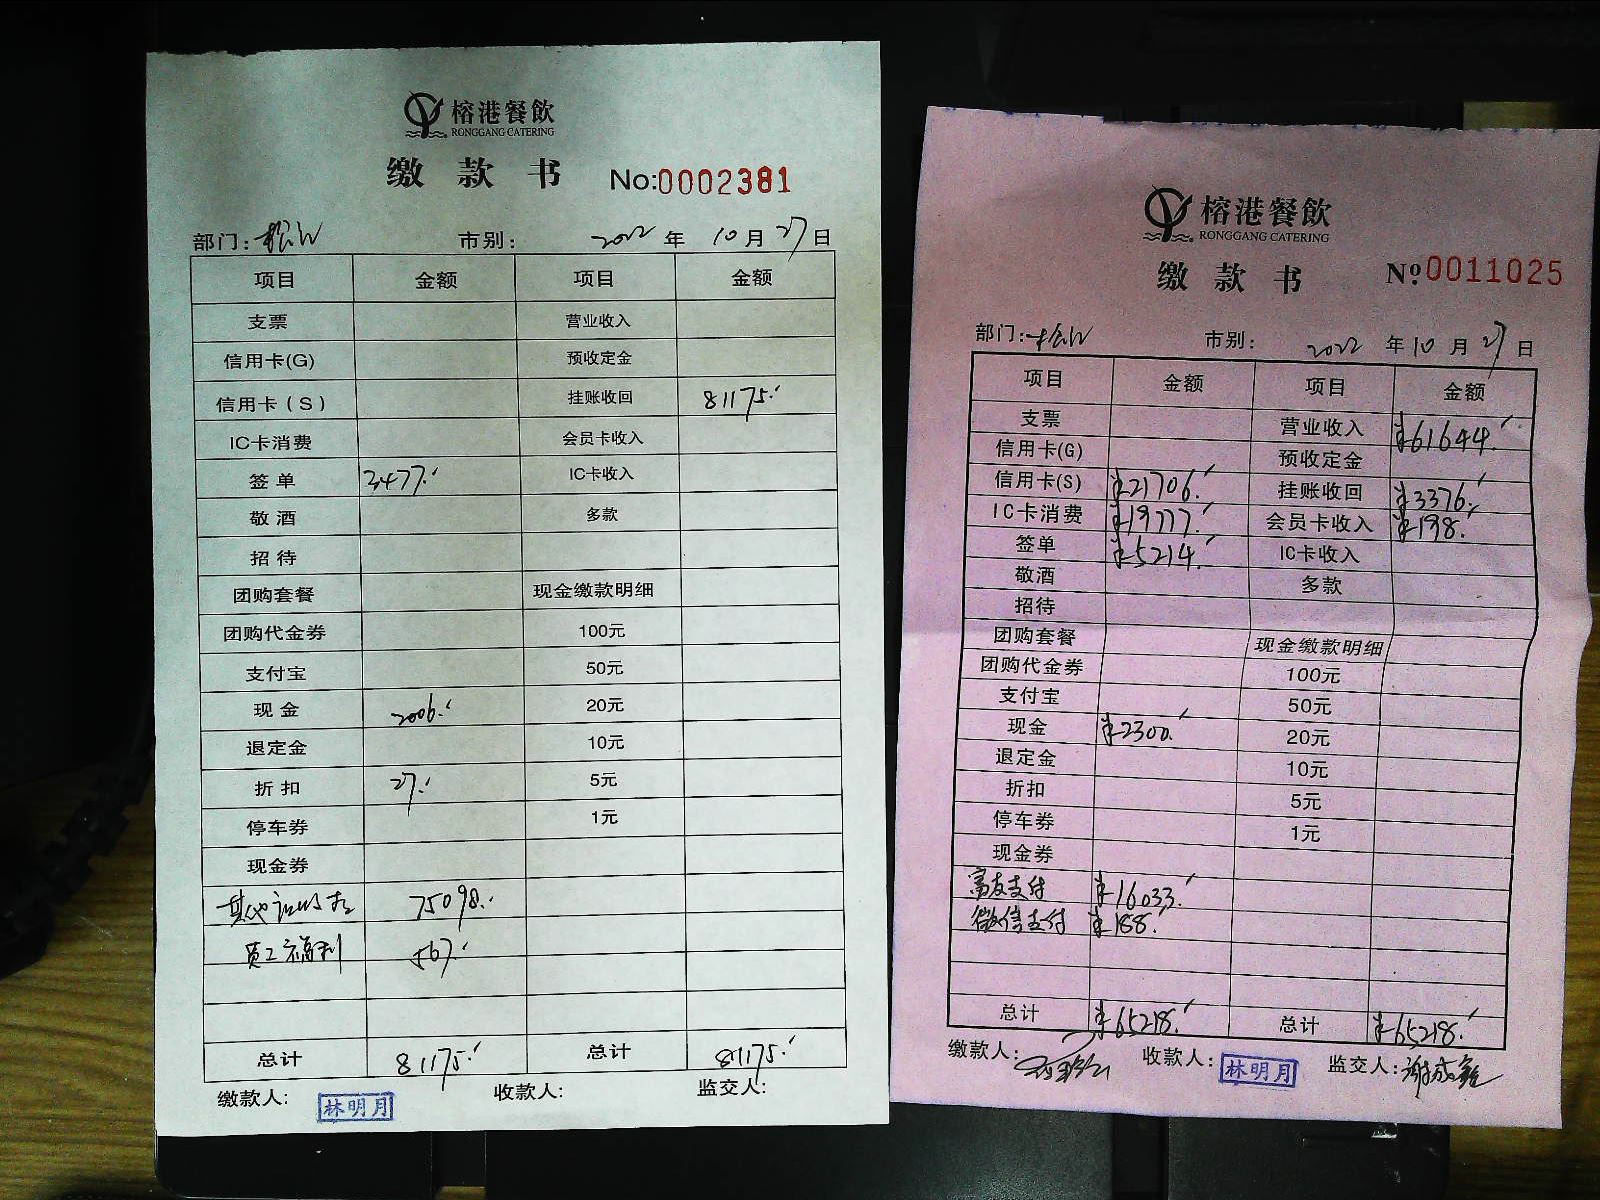 榕港餐飲
RONGGANG CATERING
缴款书 No:0002381
部门:松江 市别: 2022 年 10 月 27 日
项目 金额 项目 金额
支票 营业收入
信用卡(G) 预收定金
信用卡(S) 挂账收回 81175.
IC卡消费 会员卡收入
签单 3477. IC卡收入
敬酒 多款
招待
团购套餐 现金缴款明细
团购代金券 100元
支付宝 50元
现金 2006. 20元
退定金 10元
折扣 27. 5元
停车券 1元
现金券
其他 75098.
员工福利 567.
总计 81175. 总计 81175.
缴款人: 林明月 收款人: 监交人:
榕港餐飲
RONGGANG CATERING
缴款书 No.0011025
部门:松江 市别: 2022 年 10 月 27 日
项目 金额 项目 金额
支票 营业收入 ¥61644.
信用卡(G) 预收定金
信用卡(S) ¥21706. 挂账收回 ¥3376.
IC卡消费 ¥19777. 会员卡收入 ¥198.
签单 ¥5214. IC卡收入
敬酒 多款
招待
团购套餐 现金缴款明细
团购代金券 100元
支付宝 50元
现金 ¥2300. 20元
退定金 10元
折扣 5元
停车券 1元
现金券
富友支付 ¥16033.
微信支付 ¥188.
总计 ¥65218. 总计 ¥65218.
缴款人: 收款人: 林明月 监交人: